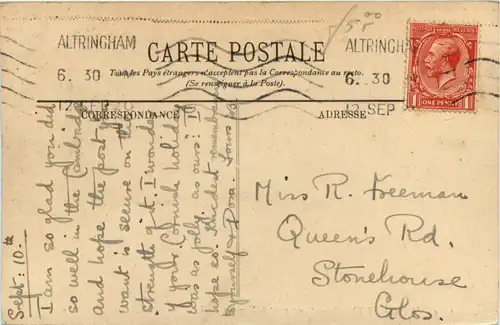 5 00
ALTRINGHAM
6. 30
12 SEP
ALTRINGHAM
6. 30
12 SEP
POSTAGE REVENUE
1 ONE PENNY 1
CARTE POSTALE
Tous les Pays étrangers n'acceptent pas la Correspondance au recto.
(Se renseigner à la Poste).
CORRESPONDANCE
ADRESSE
Sept: 10th
I am so glad you did
so well in the Cambridge
and hope the post you
want is secure on the
strength of it. I wonder
if your Cornish holiday
was as jolly as ours: I
hope so. Kindest remembr
to yourself & Dora. Yours
Miss R. Freeman
Queen's Rd.
Stonehouse
Glos.